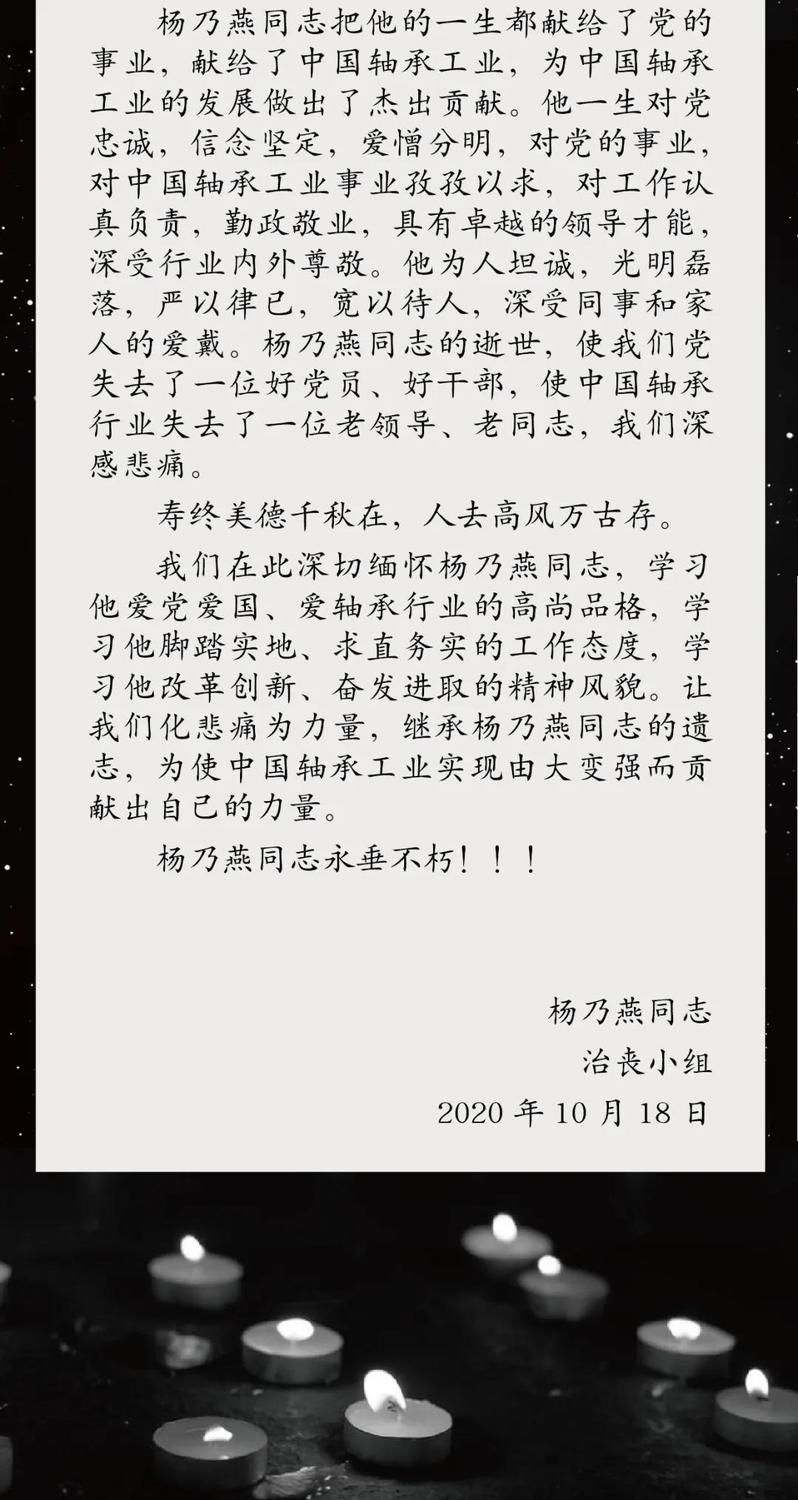 杨乃燕同志把他的一生都献给了党的
事业，献给了中国轴承工业，为中国轴承
工业的发展做出了杰出贡献。他一生对党
忠诚，信念坚定，爱憎分明，对党的事业，
对中国轴承工业事业孜孜以求，对工作认
真负责，勤政敬业，具有卓越的领导才能，
深受行业内外尊敬。他为人坦诚，光明磊
落，严以律已，宽以待人，深受同事和家
人的爱戴。杨乃燕同志的逝世，使我们党
失去了一位好党员、好干部，使中国轴承
行业失去了一位老领导、老同志，我们深
感悲痛。
寿终美德千秋在，人去高风万古存。
我们在此深切缅怀杨乃燕同志，学习
他爱党爱国、爱轴承行业的高尚品格，学
习他脚踏实地、求直务实的工作态度，学
习他改革创新、奋发进取的精神风貌。让
我们化悲痛为力量，继承杨乃燕同志的遗
志，为使中国轴承工业实现由大变强而贡
献出自己的力量。
杨乃燕同志永垂不朽！！！
杨乃燕同志
治丧小组
2020 年 10 月 18 日